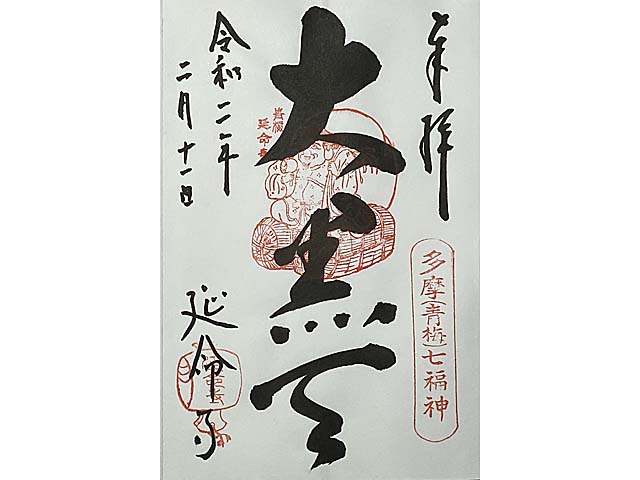 奉拝
多摩(青梅)七福神
大黒天
青梅
延命寺
令和二年
二月十一日
延命寺